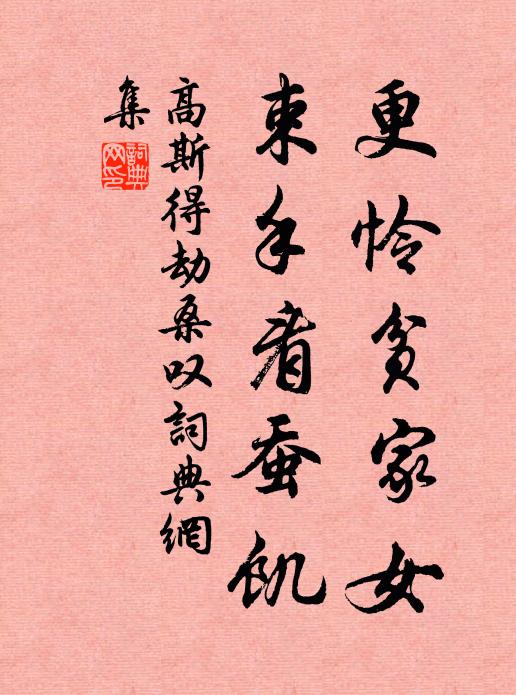 更怜贫家女
束手看蚕飢
高斯得劫桑叹詞典網
集
詞典
网印